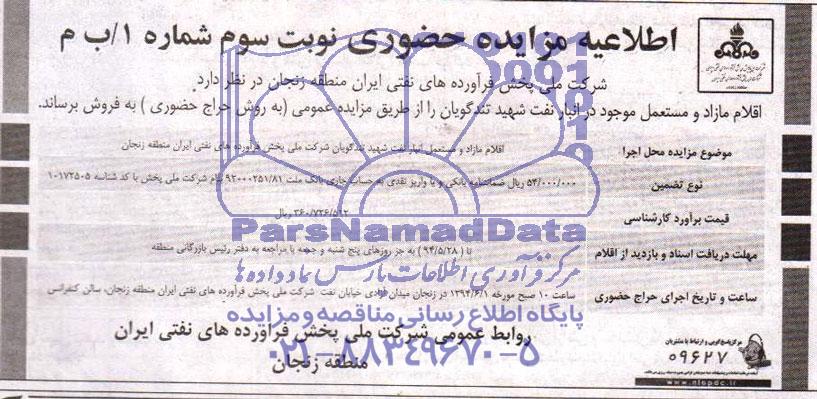 اطلاعیه مزایده حضوری نوبت سوم شماره ۱/ب م
شرکت ملی پخش فرآورده های نفتی ایران منطقه زنجان در نظر دارد
اقلام مازاد و مستعمل موجود در انبار نفت شهید تندگویان را از طریق مزایده عمومی (به روش حراج حضوری ) به فروش برساند.
موضوع مزایده محل اجرا اقلام مازاد و مستعمل انبار نفت شهید تندگویان شرکت ملی پخش فرآورده های نفتی ایران منطقه زنجان
نوع تضمین ۵۴/۰۰۰/۰۰۰ ریال ضمانتنامه بانکی و یا واریز نقدی به حساب جاری بانک ملت ۹۲۰۰۰۲۵۱/۸۱ بنام شرکت ملی پخش با کد شناسه ۱۰۱۷۲۵۰۵
قیمت برآورد کارشناسی ۳۶۰/۷۲۶/۵۹۲ ریال
مهلت دریافت اسناد و بازدید از اقلام تا ( ۹۴/۵/۲۸ ) به جز روزهای پنج شنبه و جمعه با مراجعه به دفتر رئیس بازرگانی منطقه
ساعت و تاریخ اجرای حراج حضوری ساعت ۱۰ صبح مورخه ۱۳۹۴/۶/۱ در زنجان میدان خیابان نفت شرکت ملی پخش فرآورده های نفتی ایران منطقه زنجان، سالن کنفرانس
روابط عمومی شرکت ملی پخش فرآورده های نفتی ایران
منطقه زنجان
مرکز پاسخگویی و ارتباط با مشتریان
۰۹۶۲۷
www.niopdc.ir
ParsNamadData
مرکز فرآوری اطلاعات پارس نماد داده ها
پایگاه اطلاع رسانی مناقصه و مزایده
۰۲۱-۸۸۳۴۹۶۷۰-۵